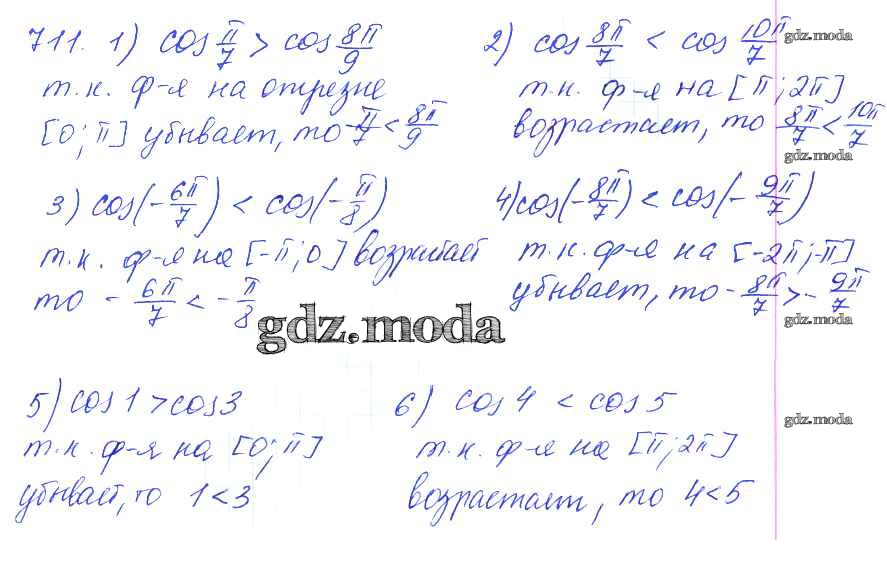 711. 1) cos π/7 > cos 8π/9
т.к. ф-я на отрезке
[0; π] убывает, то π/7 < 8π/9
2) cos 8π/7 < cos 10π/7
gdz.moda
т.к. ф-я на [π; 2π]
возрастает, то 8π/7 < 10π/7
gdz.moda
3) cos(-6π/7) < cos(-π/8)
т.к. ф-я на [-π; 0] возрастает
то -6π/7 < -π/8
4) cos(-8π/7) < cos(-9π/7)
gdz.moda
т.к. ф-я на [-2π; -π]
убывает, то -8π/7 > -9π/7
gdz.moda
gdz.moda
5) cos 1 > cos 3
т.к. ф-я на [0; π]
убывает, то 1 < 3
6) cos 4 < cos 5
gdz.moda
т.к. ф-я на [π; 2π]
возрастает, то 4 < 5